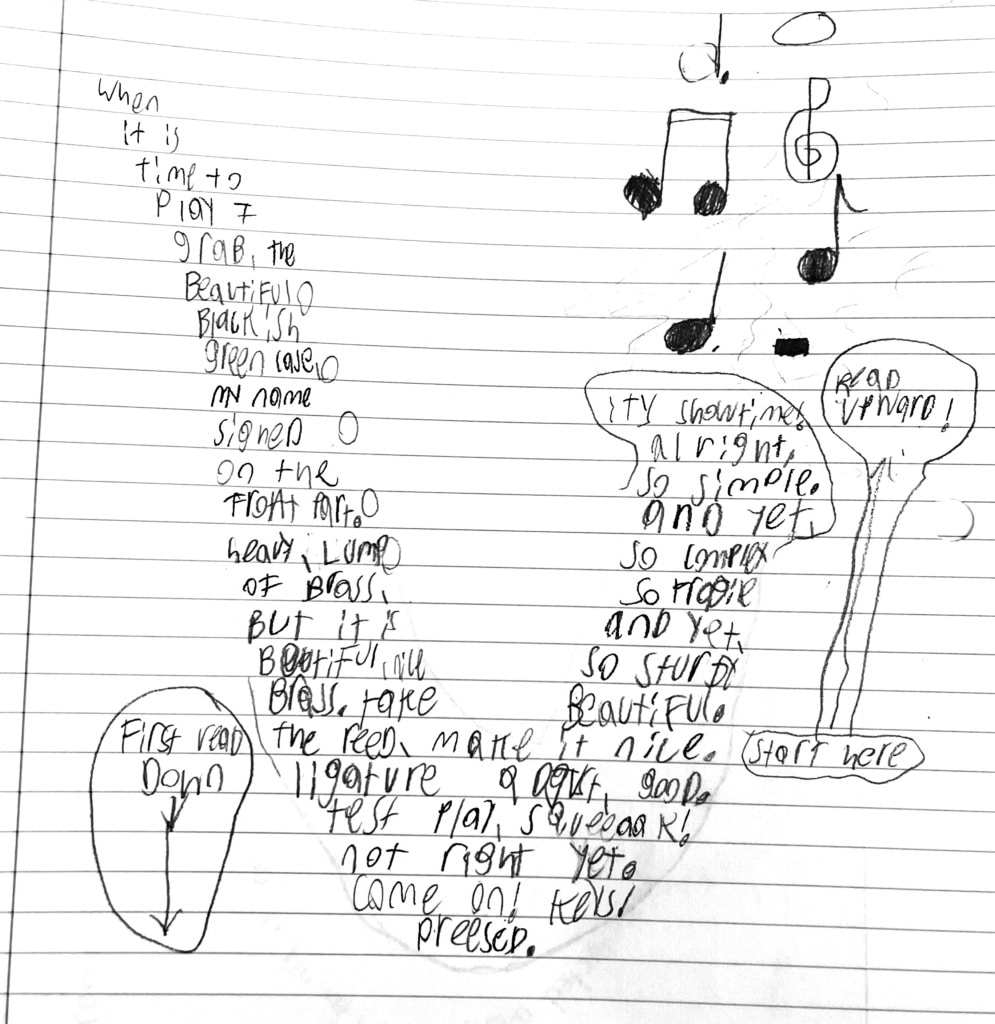 When
it is
time to
Play I
grab, the
Beautiful
Blackish
green case,
my name
signed
on the
Front Part.
heavy, Lump
OF Brass,
BUT it is
Beautiful, nice
Brass. take
the reed, make it nice.
ligature adjust, good.
test play, squeeaak!
not right yet.
Come on! Keys!
preesed.
First read
Down
Start here
Read
Upward!
Beautiful.
so sturdy
and yet,
so fragile
so complex
and yet,
so simple.
alright,
it's showtime!